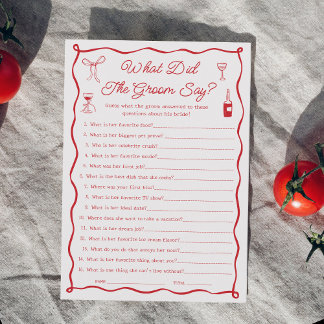 What Did
The Groom Say?
Guess what the groom answered to these
questions about his bride!
1. What is her favorite food?
2. What is her biggest pet peeve?
3. Who is her celebrity crush?
4. What is her favorite movie?
5. What was her first job?
6. What is the best dish that she cooks?
7. Where was your first kiss?
8. What is her favorite TV show?
9. What is her ideal date?
10. Where does she want to take a vacation?
11. What is her dream job?
12. What is her favorite ice cream flavor?
13. What do you do that annoys her most?
14. What is her favorite thing about you?
15. What is one thing she can't live without?
NAME